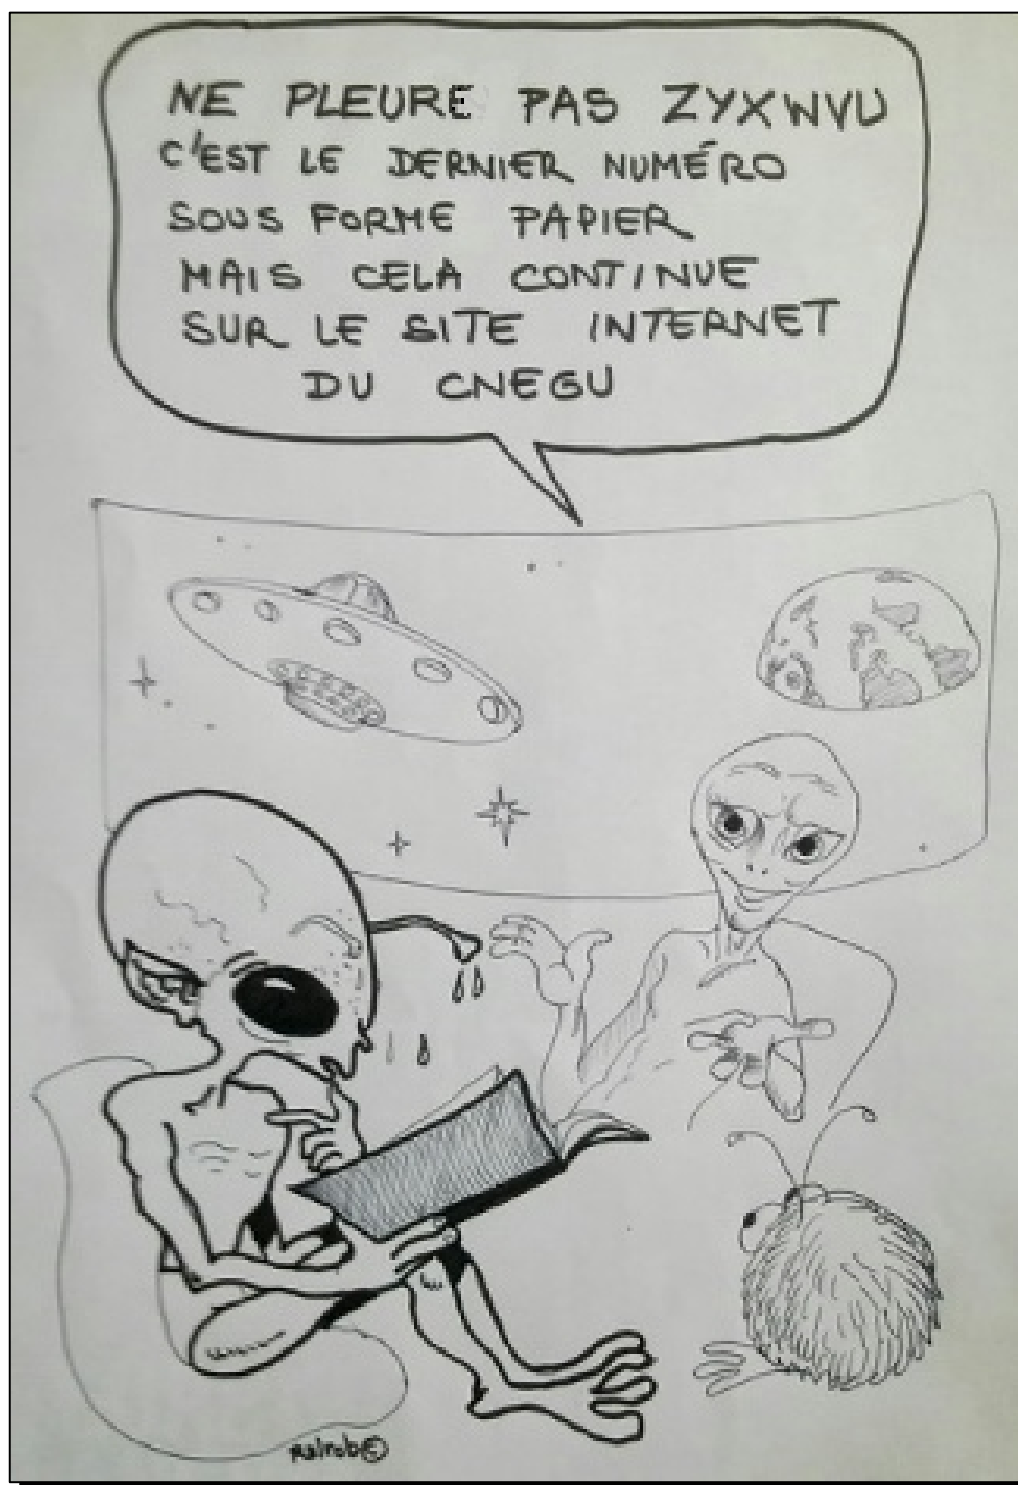 NE PLEURE PAS ZYXWVU
C'EST LE DERNIER NUMÉRO
SOUS FORME PAPIER
MAIS CELA CONTINUE
SUR LE SITE INTERNET
DU CNEGU